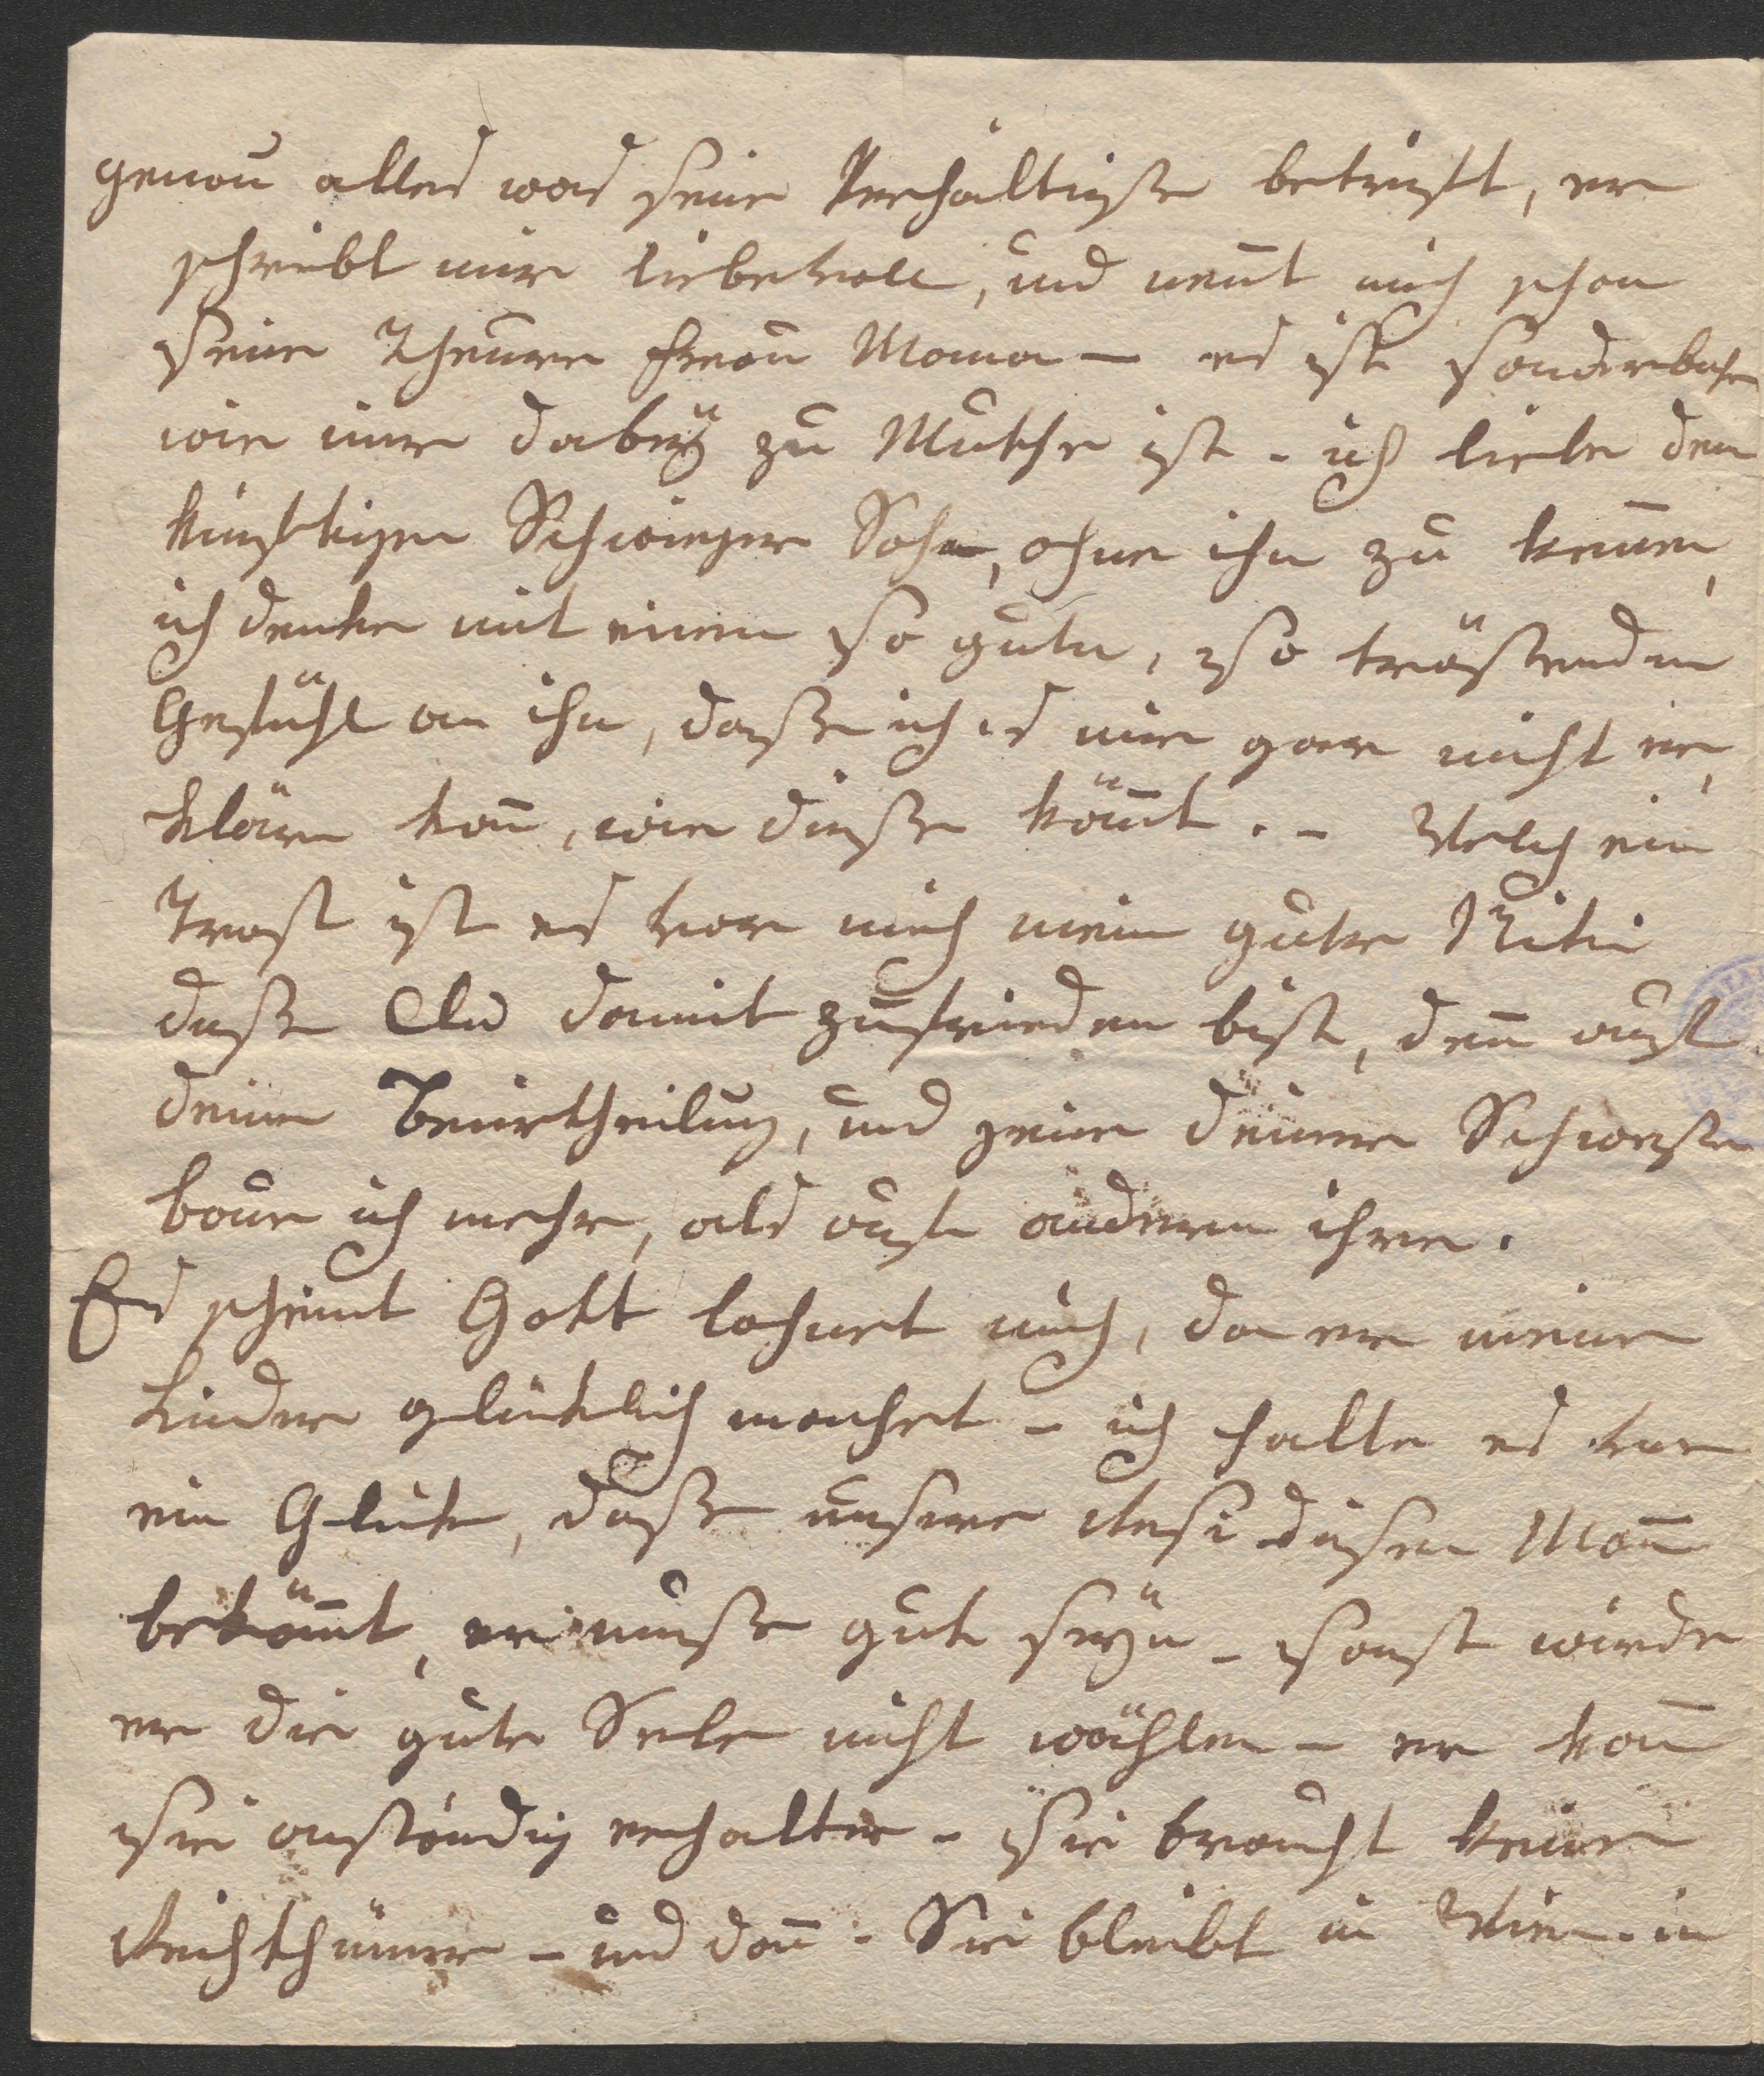 genau alles was seine Verhältnisse betrift, er
schreibt mir liebevoll, und nen̄t mich schon
seine Theure Frau Mama – es ist sonderbahr
wie mir dabeÿ zu Muthe ist – ich liebe den
künftigen Schwieger Sohn, ohne ihn zu ken̄en,
ich denke mit einem so guten, so tröstenden
Gefühl an ihn, daß ich es mir gar nicht er,
klären kan̄, wie dieß köm̄t. – Welch ein
Trost ist es vor mich mein guter
daß Du damit zufrieden bist, den̄ auf
deine Beurtheilung, und jene deiner Schwester
baue ich mehr, als auf anderen ihre.
Es scheint Gott lohnet mich, da er meine
Kinder glücklich machet – ich halte es vor
ein Glück, daß unsere Resi diesen Man̄
beköm̄t, er muß gut seÿn – sonst würde
er die gute Sele nicht wählen – er kan̄
sie anständig erhalten – sie braucht keine
Reichthümer – und dan̄ – Sie bleibt in Wien – in